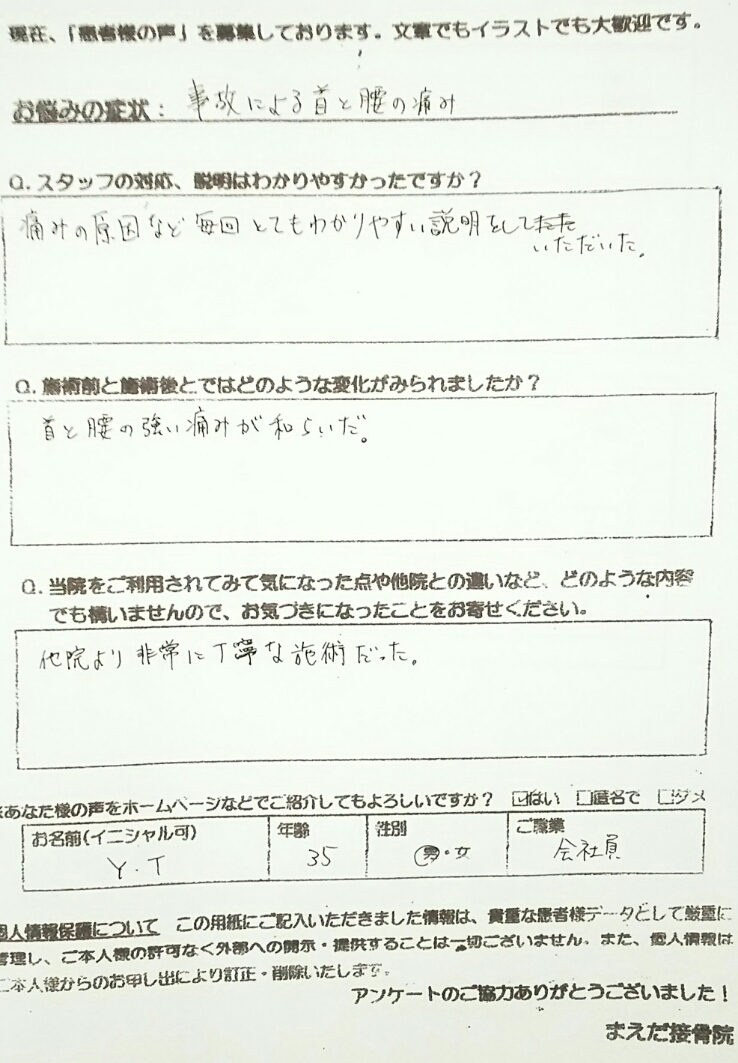 現在、「患者様の声」を募集しております。文章でもイラストでも大歓迎です。
お悩みの症状： 事故による首と腰の痛み
Q. スタッフの対応、説明はわかりやすかったですか？
痛みの原因など毎回とてもわかりやすい説明をして
いただいた。
Q. 施術前と施術後とではどのような変化がみられましたか？
首と腰の強い痛みが和らいだ。
Q. 当院をご利用されてみて気になった点や他院との違いなど、どのような内容
でも構いませんので、お気づきになったことをお寄せください。
他院より非常に丁寧な施術だった。
※あなた様の声をホームページなどでご紹介してもよろしいですか？ ☑はい □匿名で □ダメ
お名前(イニシャル可) 年齢 性別 ご職業
Y.T 35 男・女 会社員
個人情報保護について この用紙にご記入いただきました情報は、貴重な患者様データとして厳重に
管理し、ご本人様の許可なく外部への開示・提供することは一切ございません。また、個人情報は
ご本人様からのお申し出により訂正・削除いたします。
アンケートのご協力ありがとうございました！
まえだ接骨院